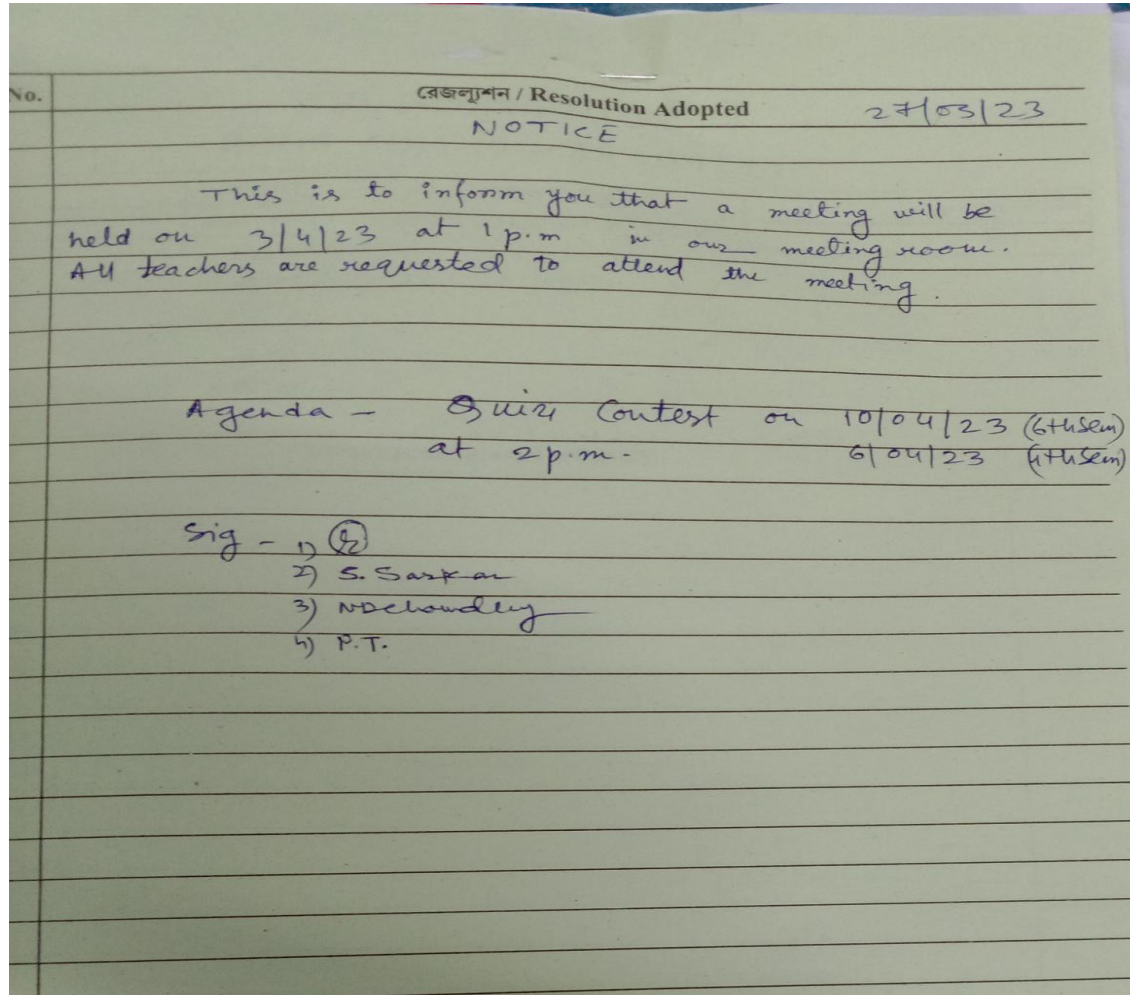 No.
রেজল্যুশন / Resolution Adopted
27/03/23
NOTICE
This is to inform you that a meeting will be
held on 3/4/23 at 1 p.m in our meeting room.
All teachers are requested to attend the meeting.
Agenda - Quiz Contest on 10/04/23 (6th Sem)
at 2 p.m. 6/04/23 (4th Sem)
Sig - 1)
2) S. Sarkar
3) NDChowdhury
4) P.T.